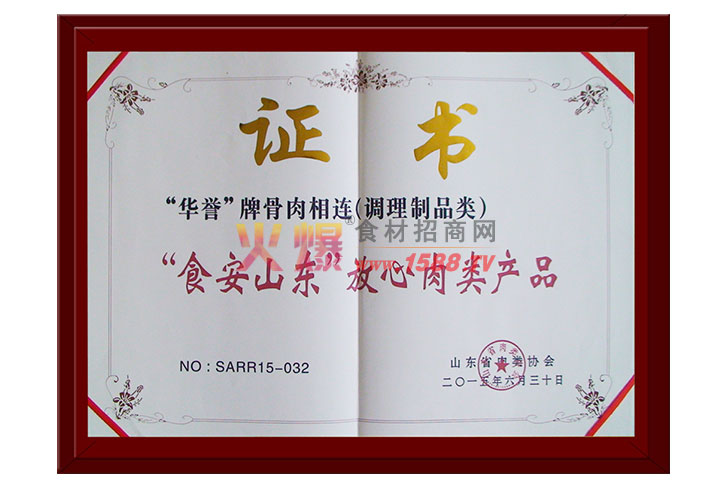 证 书
“华誉”牌骨肉相连(调理制品类)
火爆®食材招商网
www.1588.tv
“食安山东”放心肉类产品
NO：SARR15-032
山东省肉类协会
二〇一五年六月三十日